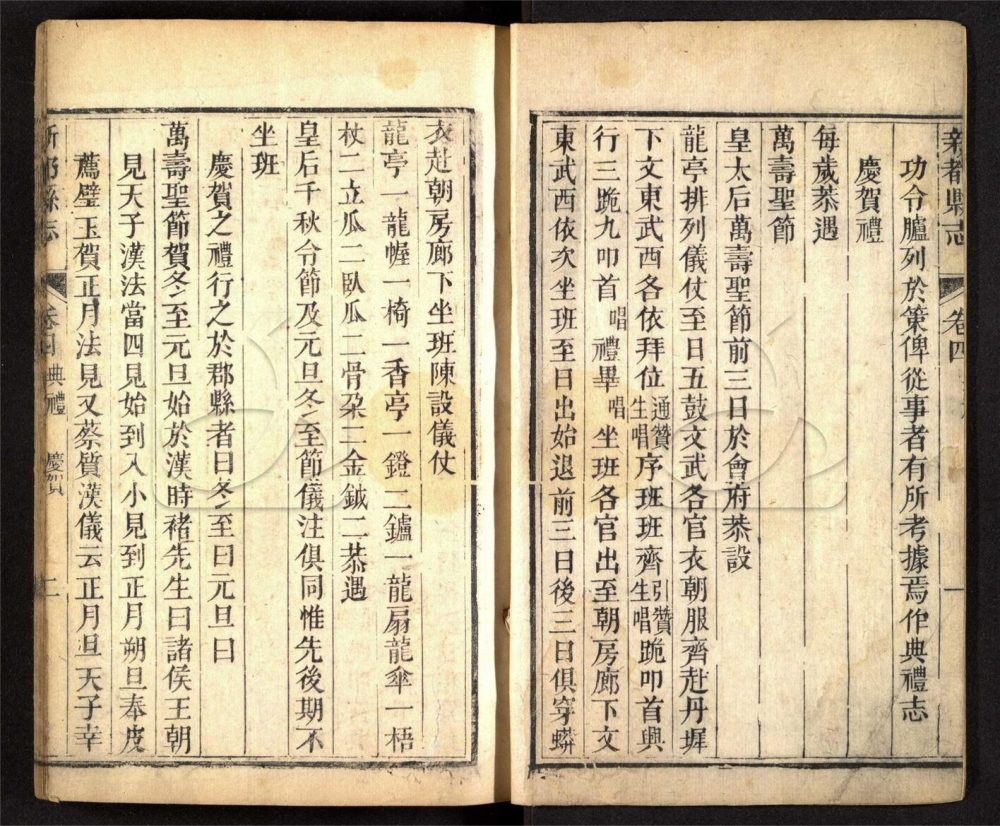 新都縣志
卷四
一
功令臚列於策俾從事者有所考據焉作典禮志
慶賀禮
每歲恭遇
萬壽聖節
皇太后萬壽聖節前三日於會府恭設
龍亭排列儀仗至日五鼓文武各官衣朝服齊赴丹墀
下文東武西各依拜位通贊生唱序班班齊引贊生唱跪叩首興
行三跪九叩首唱禮畢唱坐班各官出至朝房廊下文
東武西依次坐班至日出始退前三日後三日俱穿蟒
衣赴朝房廊下坐班陳設儀仗
龍亭一龍幄一椅一香亭一鐙二鑪一龍扇龍傘一梧
杖二立瓜二臥瓜二骨朶二金鉞二恭遇
皇后千秋令節及元旦冬至節儀注俱同惟先後期不
坐班
慶賀之禮行之於郡縣者曰冬至曰元旦曰
萬壽聖節賀冬至元旦始於漢時褚先生曰諸侯王朝
見天子漢法當四見始到入小見到正月朔旦奉皮
薦璧玉賀正月法見又蔡質漢儀云正月旦天子幸
新都縣志
典禮
慶賀
二